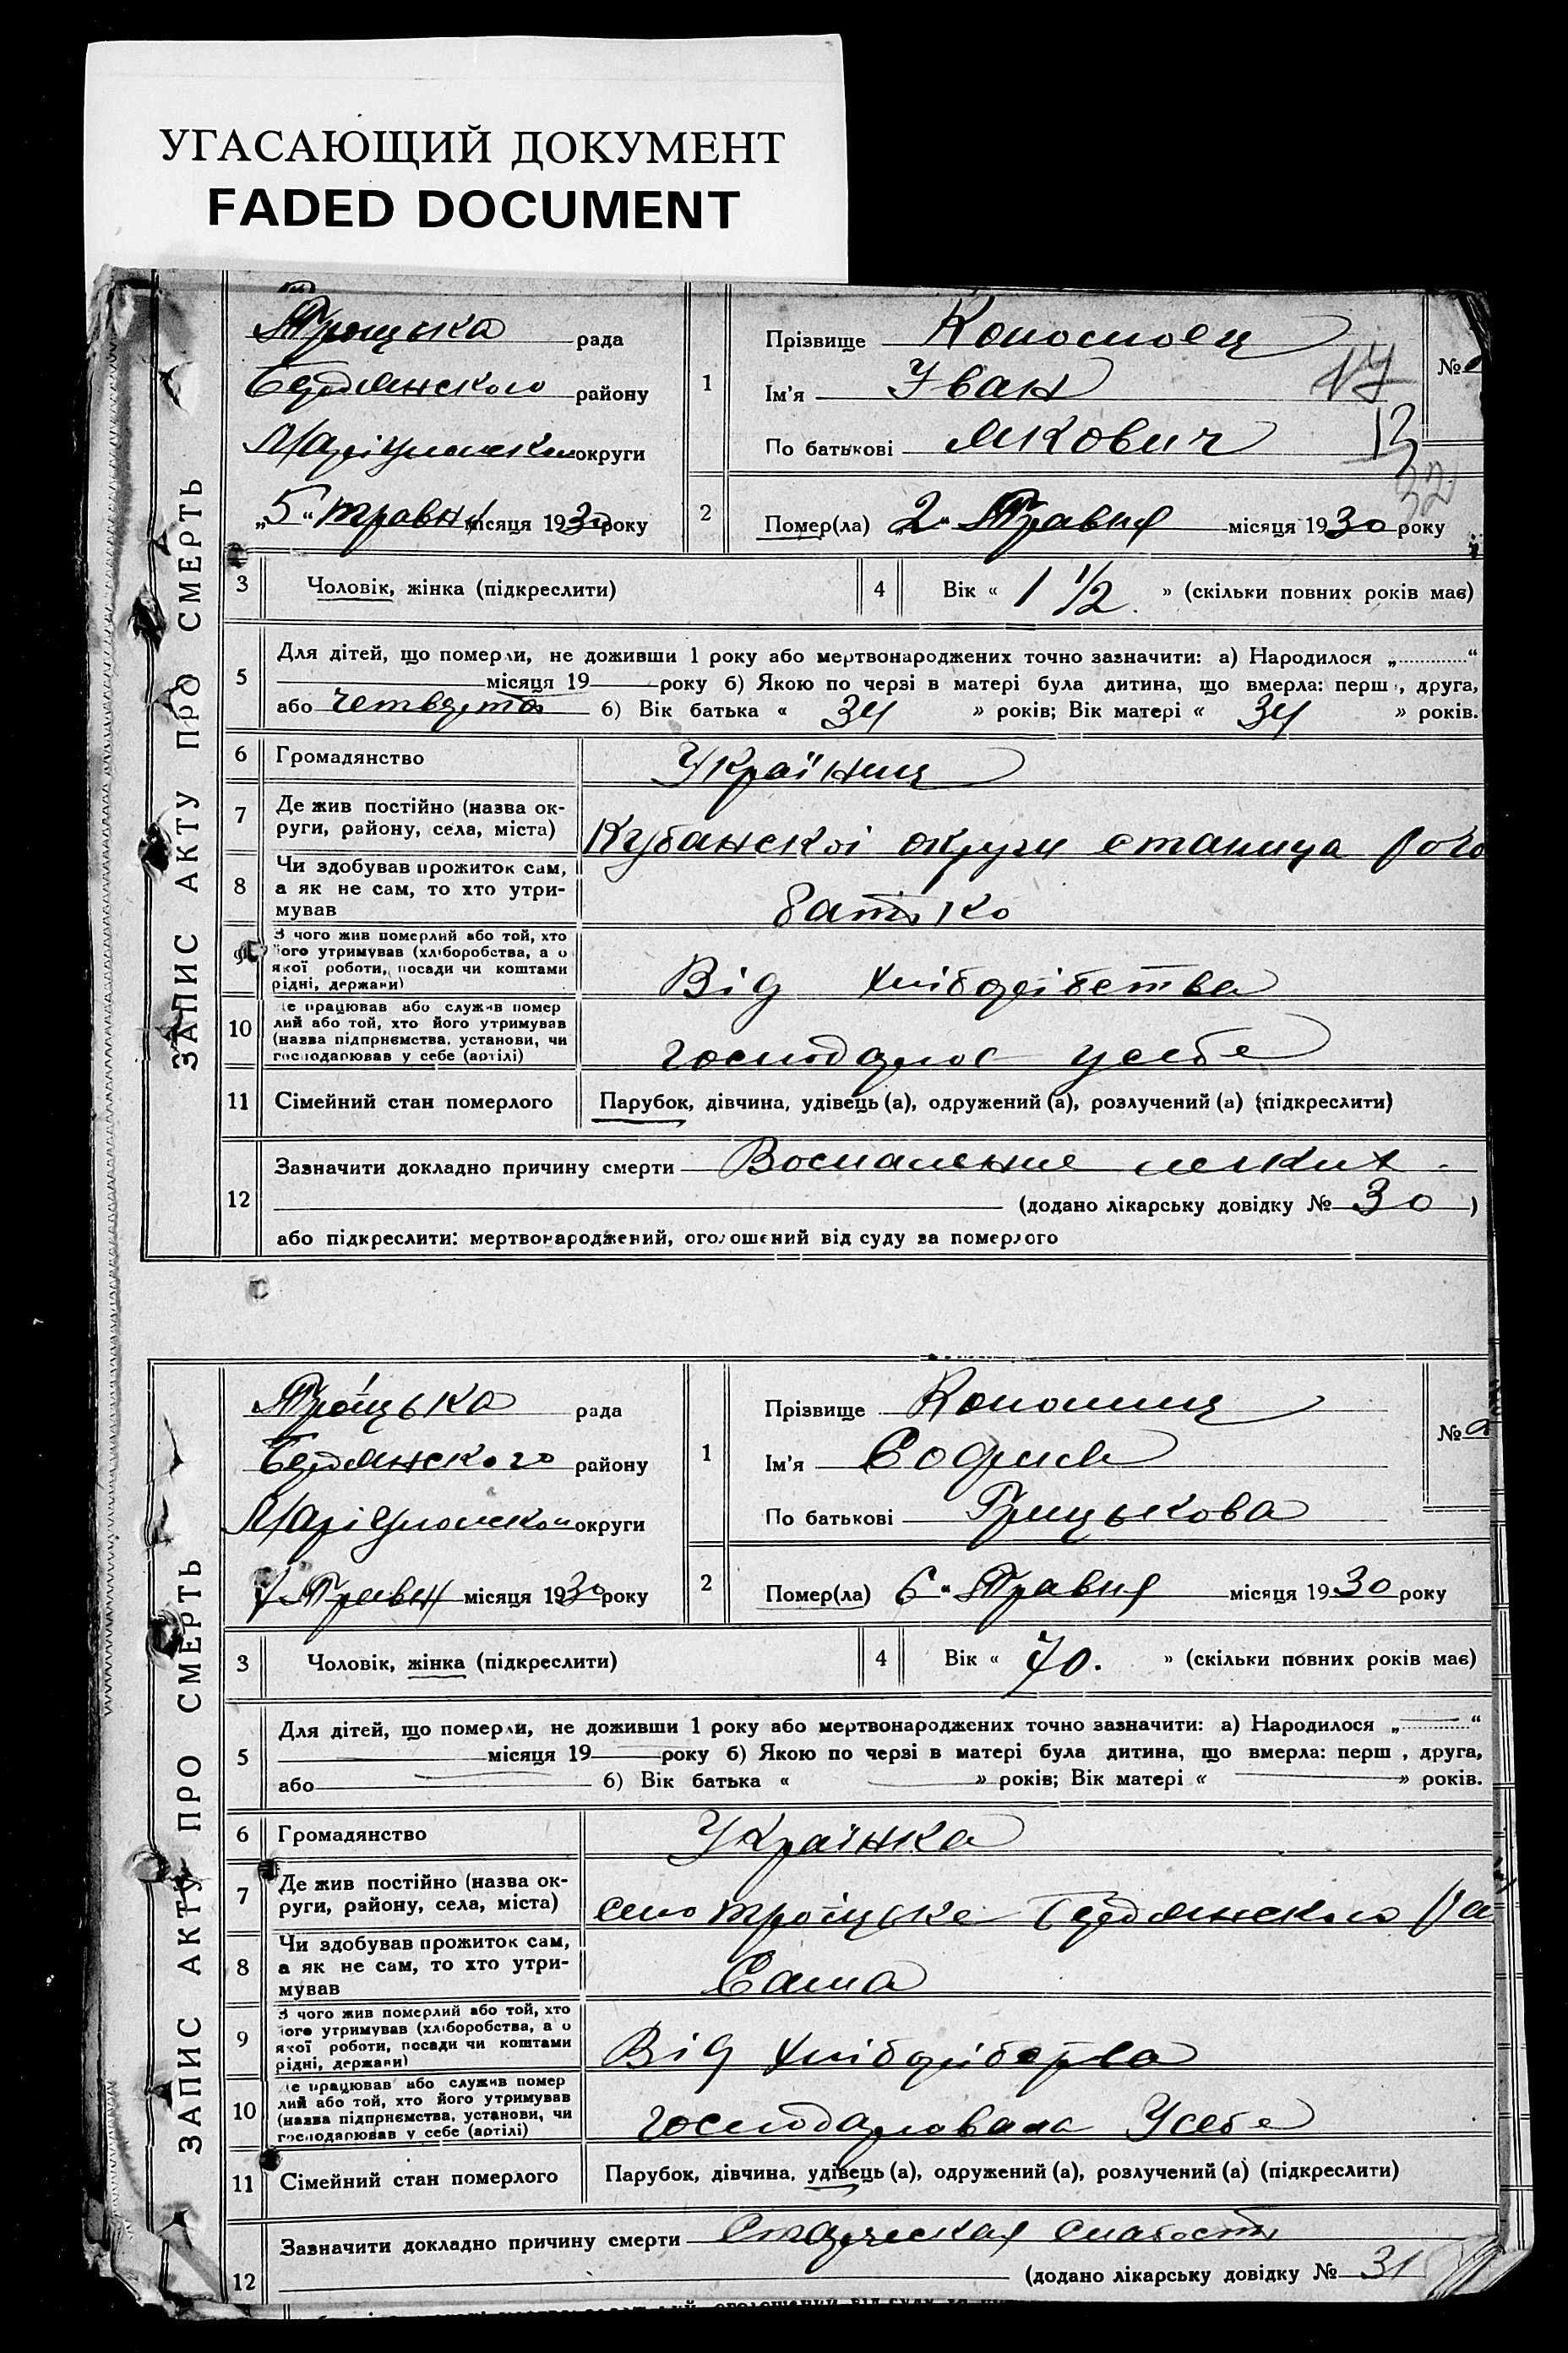 УГАСАЮЩИЙ ДОКУМЕНТ
FADED DOCUMENT
ЗАПИС АКТУ ПРО СМЕРТЬ
Троцька рада
Бердянского району
Маріупольскои округи
„5“ травня місяця 1930 року
1
Прізвище
Ім'я Іван
По батькові Якович
№
17
13
32
2
Помер(ла) „2“ Травня місяця 1930 року
3 Чоловік, жінка (підкреслити)
4 Вік « 1 1/2. » (скільки повних років має)
5
Для дітей, що померли, не доживши 1 року або мертвонароджених точно зазначити: а) Народилося „............“
місяця 19 року б) Якою по черзі в матері була дитина, що вмерла: перш , друга,
або четверта б) Вік батька « 34 » років; Вік матері « 34 » років.
6 Громадянство Українец
7 Де жив постійно (назва ок-
руги, району, села, міста) Кубанскоі округи станица
8 Чи здобував прожиток сам,
а як не сам, то хто утри-
мував батько
9 З чого жив померлий або той, хто
його утримував (хліборобства, а о
якої роботи, посади чи коштами
рідні, держави) Від хлібдрібства
10 Де працював або служив помер
лий або той, хто його утримував
(назва підприємства, установи, чи
господарював у себе (артілі) усебе
11 Сімейний стан померлого Парубок, дівчина, удівець (а), одружений (а), розлучений (а) (підкреслити)
12
Зазначити докладно причину смерти Воспаление легких
(додано лікарську довідку № 30 )
або підкреслити: мертвонароджений, оголошений від суду за померлого
ЗАПИС АКТУ ПРО СМЕРТЬ
Троїцька рада
Бердянского району
Маріупольскои округи
7 Травня місяця 1930 року
1
Прізвище
Ім'я София
По батькові Грицькова
№
2
Помер(ла) 6“ Травня місяця 1930 року
3 Чоловік, жінка (підкреслити)
4 Вік « 70. » (скільки повних років має)
5
Для дітей, що померли, не доживши 1 року або мертвонароджених точно зазначити: а) Народилося „............“
місяця 19 року б) Якою по черзі в матері була дитина, що вмерла: перш , друга,
або б) Вік батька « » років; Вік матері « » років.
6 Громадянство Українка
7 Де жив постійно (назва ок-
руги, району, села, міста) село троїцьке Бердянского ра
8 Чи здобував прожиток сам,
а як не сам, то хто утри-
мував Сама
9 З чого жив померлий або той, хто
його утримував (хліборобства, а о
якої роботи, посади чи коштами
рідні, держави) Від
10 Де працював або служив помер
лий або той, хто його утримував
(назва підприємства, установи, чи
господарював у себе (артілі) господаровала Усебе
11 Сімейний стан померлого Парубок, дівчина, удівець (а), одружений (а), розлучений (а) (підкреслити)
12
Зазначити докладно причину смерти Старческая слабость
(додано лікарську довідку № 31